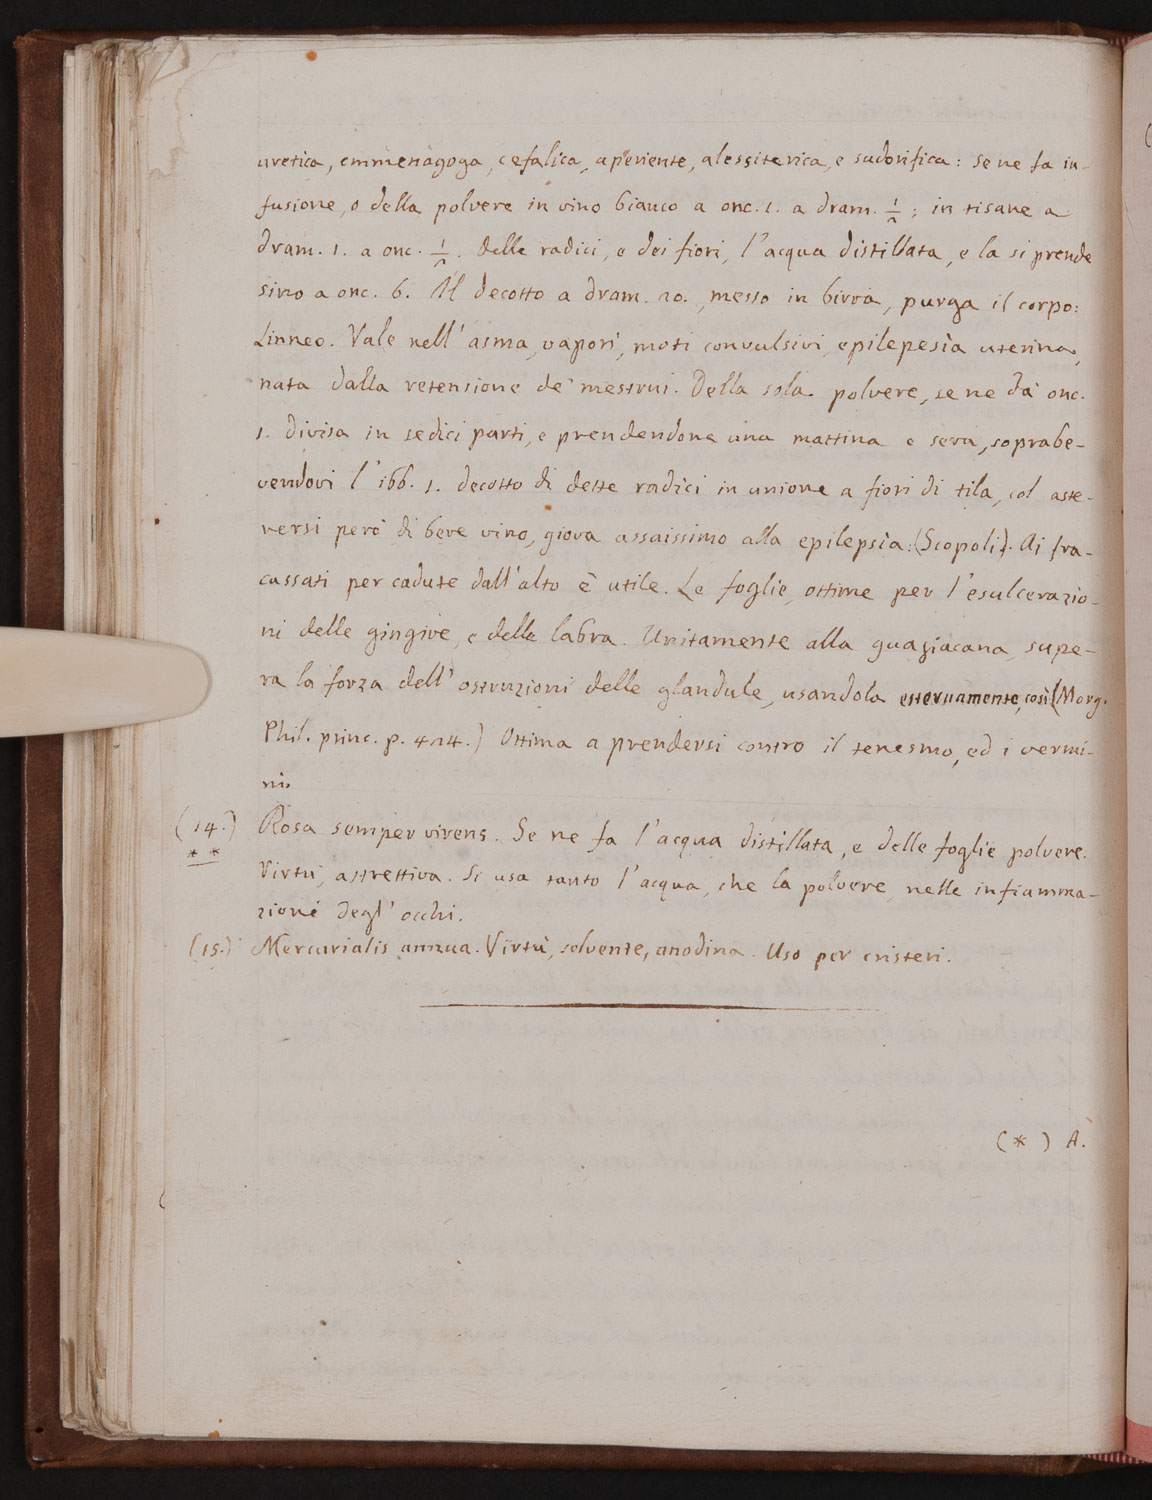 uretica, emmenagoga, cefalica, aperiente, alessiterica, e sudorifica: se ne fa in-
fusione, o della polvere in vino bianco a onc. 1. a dram. 1/2; in tisane a
dram. 1. a onc. 1/2. delle radici, e dei fiori, l'acqua distillata, e la si prende
sino a onc. 6. Il decotto a dram. 20., messo in birra, purga il corpo:
Linneo. Vale nell' asma, vapori, moti convulsivi, epilepesìa uterina,
nata dalla retensione de' mestrui. Della sola polvere, se ne dà onc.
1. divisa in sedici parti, e prendendone una mattina e sera, soprabe-
vendovi l' ibb. 1. decotto di dette radici in unione a fiori di tila, col aste-
versi però di bere vino, giova assaissimo alla epilepsìa: (Scopoli). Ai fra-
cassati per cadute dall'alto è utile. Le foglie, ottime per l'esulcerazio-
ni delle gingive, e delle labra. Unitamente alla guaziacana, supe-
ra la forza dell' ostruzioni delle glandule, usandola esternamente, così (Morg.
Phil. princ. p. 424.) Ottima a prendersi contro il tenesmo, ed i vermi-
ni.
(14.) Rosa semper virens. Se ne fa l'acqua distillata, e delle foglie polvere.
** Virtù, astrettiva. Si usa tanto l'acqua, che la polvere, nelle infiamma-
zioni degl' occhi.
(15.) Mercurialis annua. Virtù, solvente, anodina. Uso per cristeri.
(*) A.